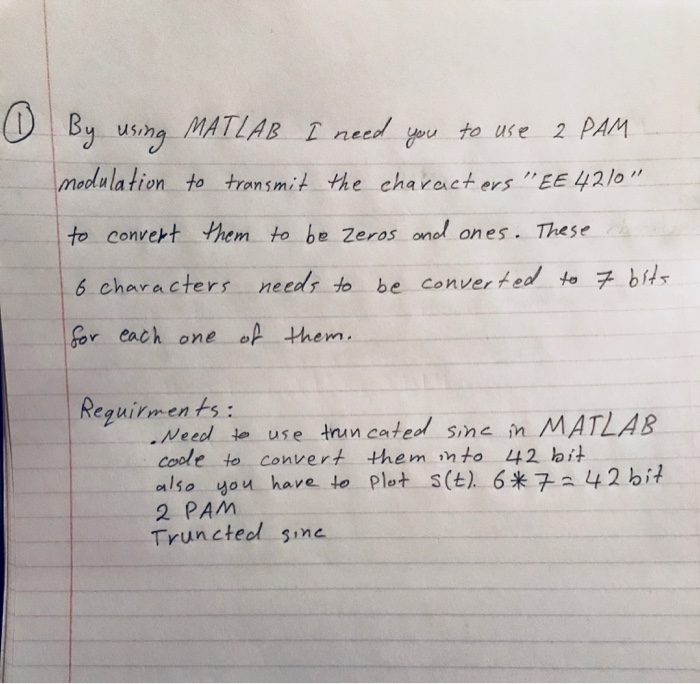 ① By using MATLAB I need you to use 2 PAM
modulation to transmit the characters "EE 4210"
to convert them to be zeros and ones. These
6 characters needs to be converted to 7 bits
for each one of them.
Requirments:
. Need to use truncated sinc in MATLAB
code to convert them into 42 bit
also you have to plot s(t). 6*7=42 bit
2 PAM
Truncted sinc